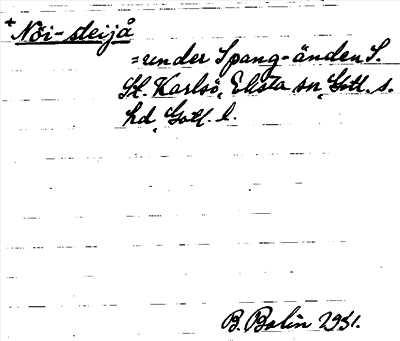 + Nöi-steijå
= under Spang-änden S.
St. Karlsö, Eksta sn, Gotl. s.
hd, Gotl. l.
B. Bolin 1931.